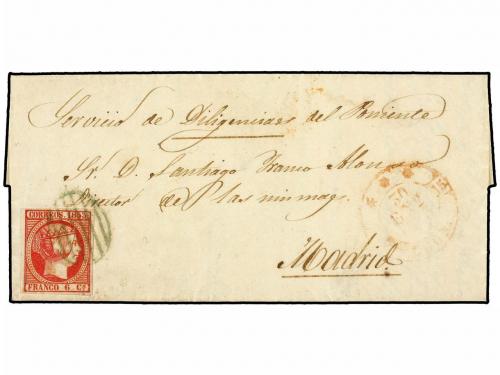 Servicio de Diligencias del Poniente
Sr. D. Santiago Franco Alonso
Director de las mismas
Madrid
CORREOS. 1853.
FRANCO 6 Cs